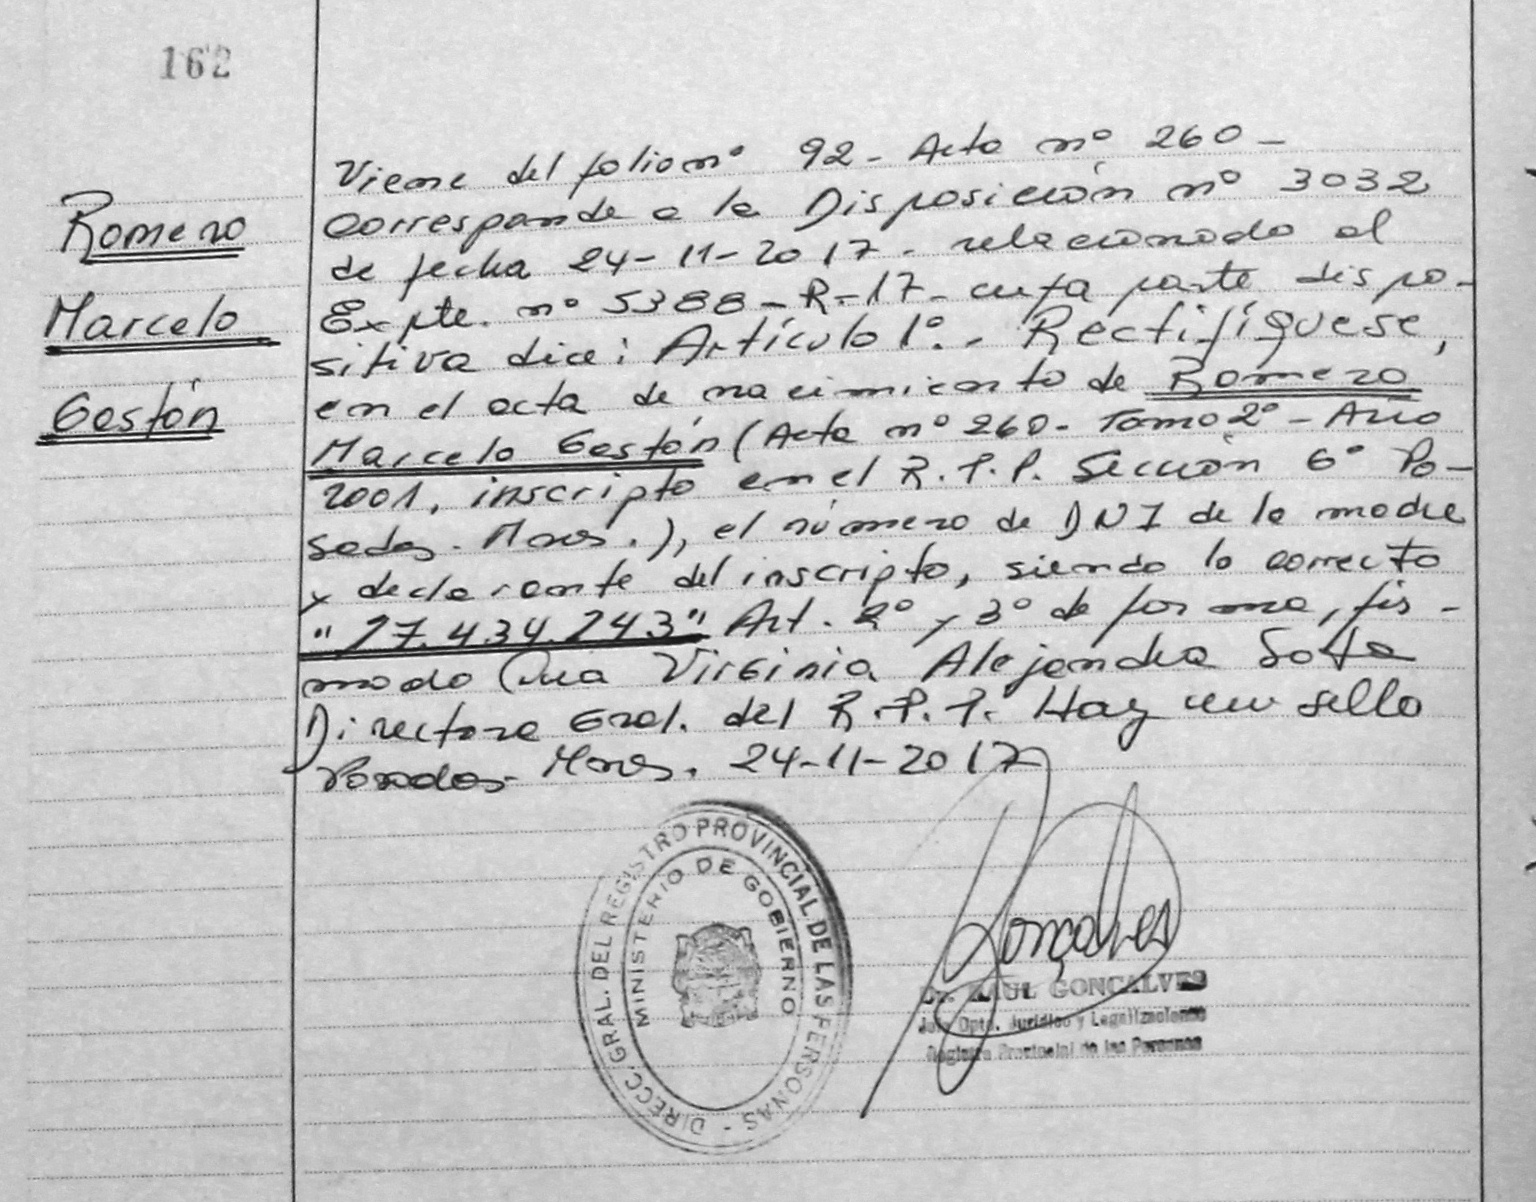 162
Romero
Marcelo
Gastón
Viene del folio nº 92 - Acta nº 260 -
Corresponde a la Disposición nº 3032
de fecha 24-11-2017 - relacionado al
Expte. nº 5388-R-17 - cuya parte dispo-
sitiva dice: Artículo 1º.- Rectifíquese,
en el acta de nacimiento de Romero
Marcelo Gastón (Acta nº 260 - Tomo 2º - Año
2001, inscripto en el R.P.P. Sección 6º Po-
sadas - Mnes.), el número de DNI de la madre
y declarante del inscripto, siendo lo correcto
"27.434.243" Art. 2º y 3º de forma, fir-
mado Dra Virginia Alejandra Sosa
Directora Gral. del R.P.P. Hay un sello
Posadas - Mnes. 24-11-2017
DIRECC. GRAL. DEL REGISTRO PROVINCIAL DE LAS PERSONAS -
MINISTERIO DE GOBIERNO
Gonçalves
Dr. RAUL GONCALVES
Jefe Dpto. Jurídico y Legalizaciones
Registro Provincial de las Personas